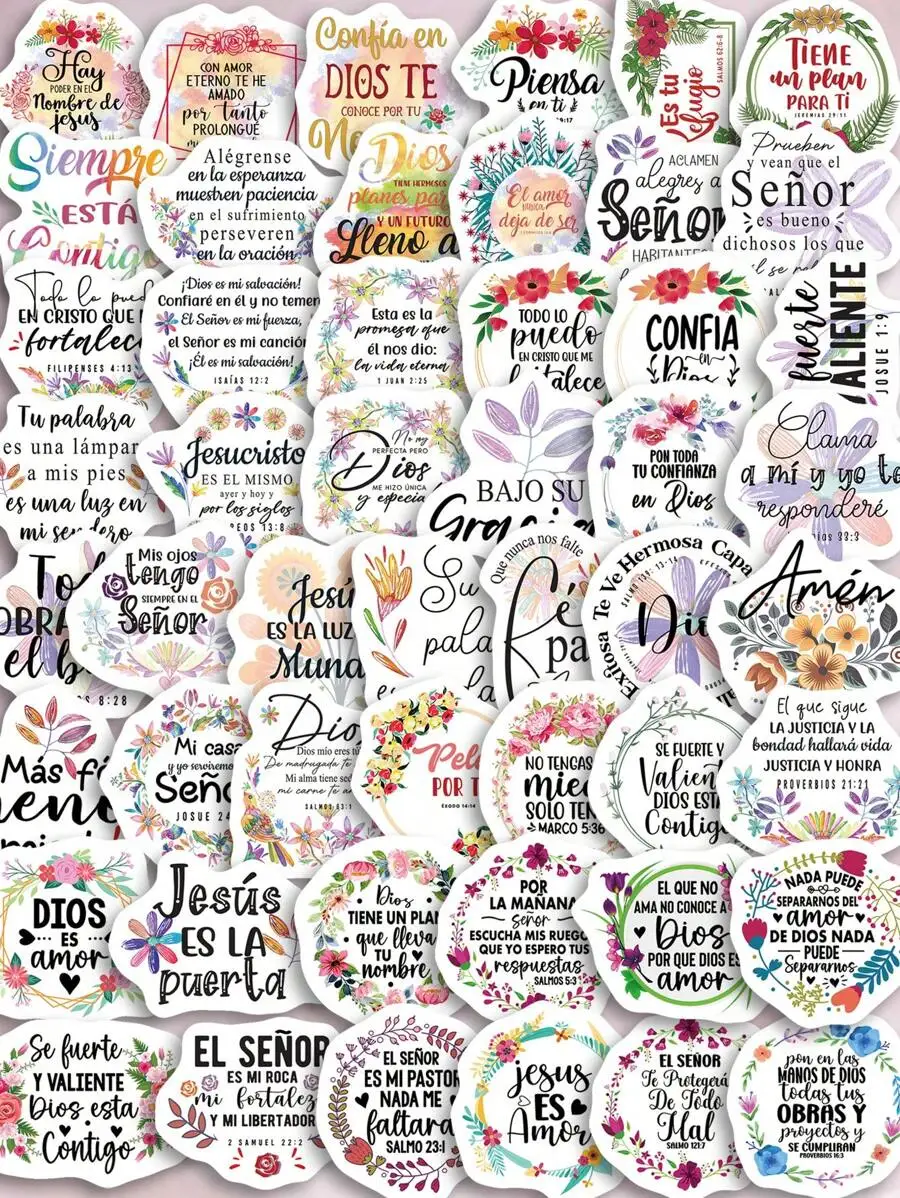 Hay
PODER EN EL
Nombre de
jesus
CON AMOR
ETERNO TE HE
AMADO
por tanto
PROLONGUÉ
Confía en
DIOS TE
CONOCE POR TU
Piensa
en ti
Es tu
refugio
SALMOS 62:6-8
TIENE
un plan
PARA TI
JEREMIAS 29:11
Siempre
ESTÁ
Contigo
Alégrense
en la esperanza
muestren paciencia
en el sufrimiento
perseveren
en la oración
Dios
TIENE HERMOSOS
planes par
Y UN FUTURO
Lleno d
El amor
NUNCA
deja de ser
ACLAMEN
alegres a
Señor
HABITANTES
Prueben
y vean que el
Señor
es bueno
dichosos los que
Todo lo pued
EN CRISTO QUE
fortalec
FILIPENSES 4:13
¡Dios es mi salvación!
Confiaré en él y no temer
El Señor es mi fuerza,
el Señor es mi canció
¡Él es mi salvación!
ISAÍAS 12:2
Esta es la
promesa que
él nos dio:
la vida eterna
1 JUAN 2:25
TODO LO
puedo
EN CRISTO QUE ME
fortalece
CONFIA
en
Dios
fuerte
VALIENTE
JOSUE 1:9
Tu palabra
es una lámpar
a mis pies
es una luz en
mi sendero
Jesucristo
ES EL MISMO
ayer y hoy y
por los siglos
REOS 13:8
No soy
PERFECTA PERO
Dios
ME HIZO ÚNICA
y especial
BAJO SU
Gracia
PON TODA
TU CONFIANZA
en Dios
Clama
a mí y yo te
responderé
33:3
To
OBRA
el b
8:28
Mis ojos
tengo
SIEMPRE EN EL
Señor
Jesú
ES LA LUZ
Mund
Su
pala
Que nunca nos falte
Fé
pa
Exitosa Te Ve Hermosa Capa
Dio
Amén
Más fé
men
Mi casa
y yo serviremos
Seño
JOSUE 24
Dios
Dios mío eres tú
De madrugada te
Mi alma tiene sed
mi carne te an
SALMOS 63:1
Pele
POR T
ÉXODO 14:14
NO TENGAS
mied
SOLO TEN
MARCO 5:36
SE FUERTE Y
Valient
DIOS ESTA
Contigo
El que sigue
LA JUSTICIA Y LA
bondad hallará vida
JUSTICIA Y HONRA
PROVERBIOS 21:21
DIOS
ES
amor
Jesús
ES LA
puerta
Dios
TIENE UN PLAN
que lleva
TU
nombre
POR
LA MAÑANA
señor
ESCUCHA MIS RUEGO
QUE YO ESPERO TUS
respuestas
SALMOS 5:3
EL QUE NO
AMA NO CONOCE A
Dios
POR QUE DIOS ES
amor
NADA PUEDE
SEPARARNOS DEL
amor
DE DIOS NADA
PUEDE
Separarnos
Se fuerte
Y VALIENTE
Dios esta
Contigo
EL SEÑOR
ES MI ROCA
mi fortalez
Y MI LIBERTADOR
2 SAMUEL 22:2
EL SEÑOR
ES MI PASTOR
NADA ME
faltara
SALMO 23:1
jesus
ES
Amor
EL SEÑOR
Te Protegerá
De Todo
Mal
SALMO 121:7
pon en las
MANOS DE DIOS
todas tus
OBRAS Y
proyectos y
SE CUMPLIRAN
PROVERBIOS 16:3